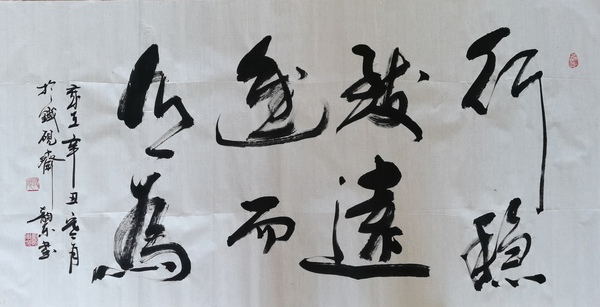 行穩
致遠
進而
有為
歲在辛丑月
於鐵硯齋
書